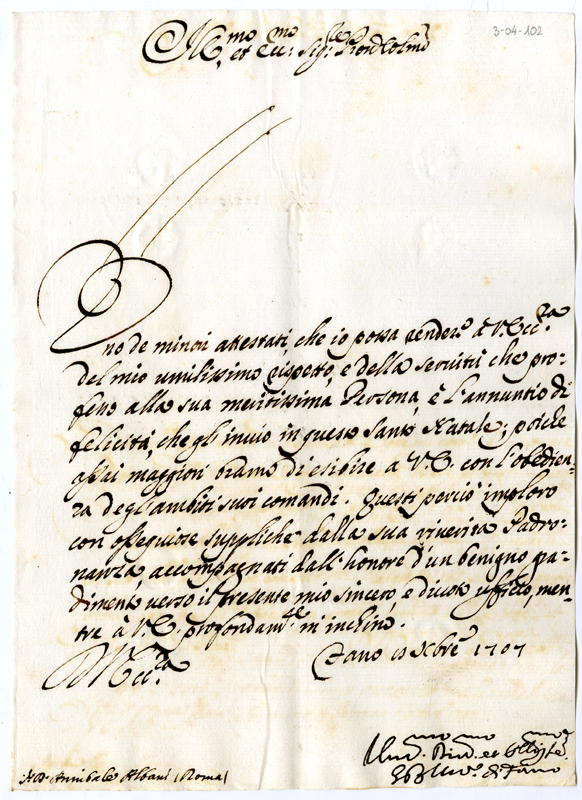 3-04-102
Ill.mo et Ecc.mo Sig.re Pron Col.mo
Uno de minori attestati, che io possa render à V. Ecc.za
del mio umilissimo rispetto, e della servitù che pro-
fesso alla sua meritissima Persona, è l'annuntio di
felicità, che gli invio in questo Santo Natale; poiche
assai maggiori bramo di esibire a V. E. con l'obedien-
za degl'ambiti suoi comandi. Questi perciò imploro
con ossequiose suppliche dalla sua riverita Padro-
nanza, accompagnati dall'honore d'un benigno gra-
dimento verso il presente mio sincero, e divoto ufficio, men-
tre à V. E. profondam.te m'inchino.
Fano Xcbre 1707
Um. Div. et Obl.
di Fano
Annibale Albani (Roma)